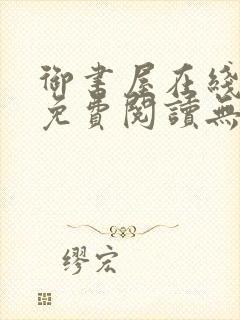 御書屋在綫
免費閱讀無
繆宏